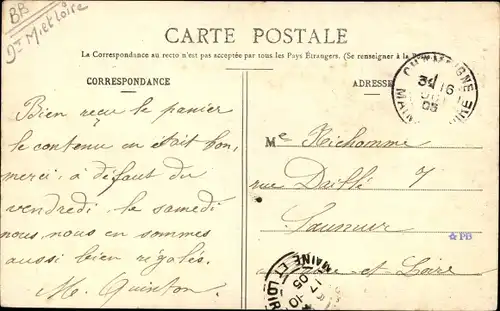 BB
Dt M. et Loire
CARTE POSTALE
La Correspondance au recto n'est pas acceptée par tous les Pays Étrangers. (Se renseigner à la
CORRESPONDANCE
ADRESSE
Bien reçu le panier
le contenu en était bon,
merci. à défaut du
vendredi, le samedi
nous nous en sommes
aussi bien régalés.
M. Quinton
16
05
Me Richomme
rue Daillé 7
Saumur
Maine-et-Loire
☆ PB
MAINE ET LOIRE
17-10
05